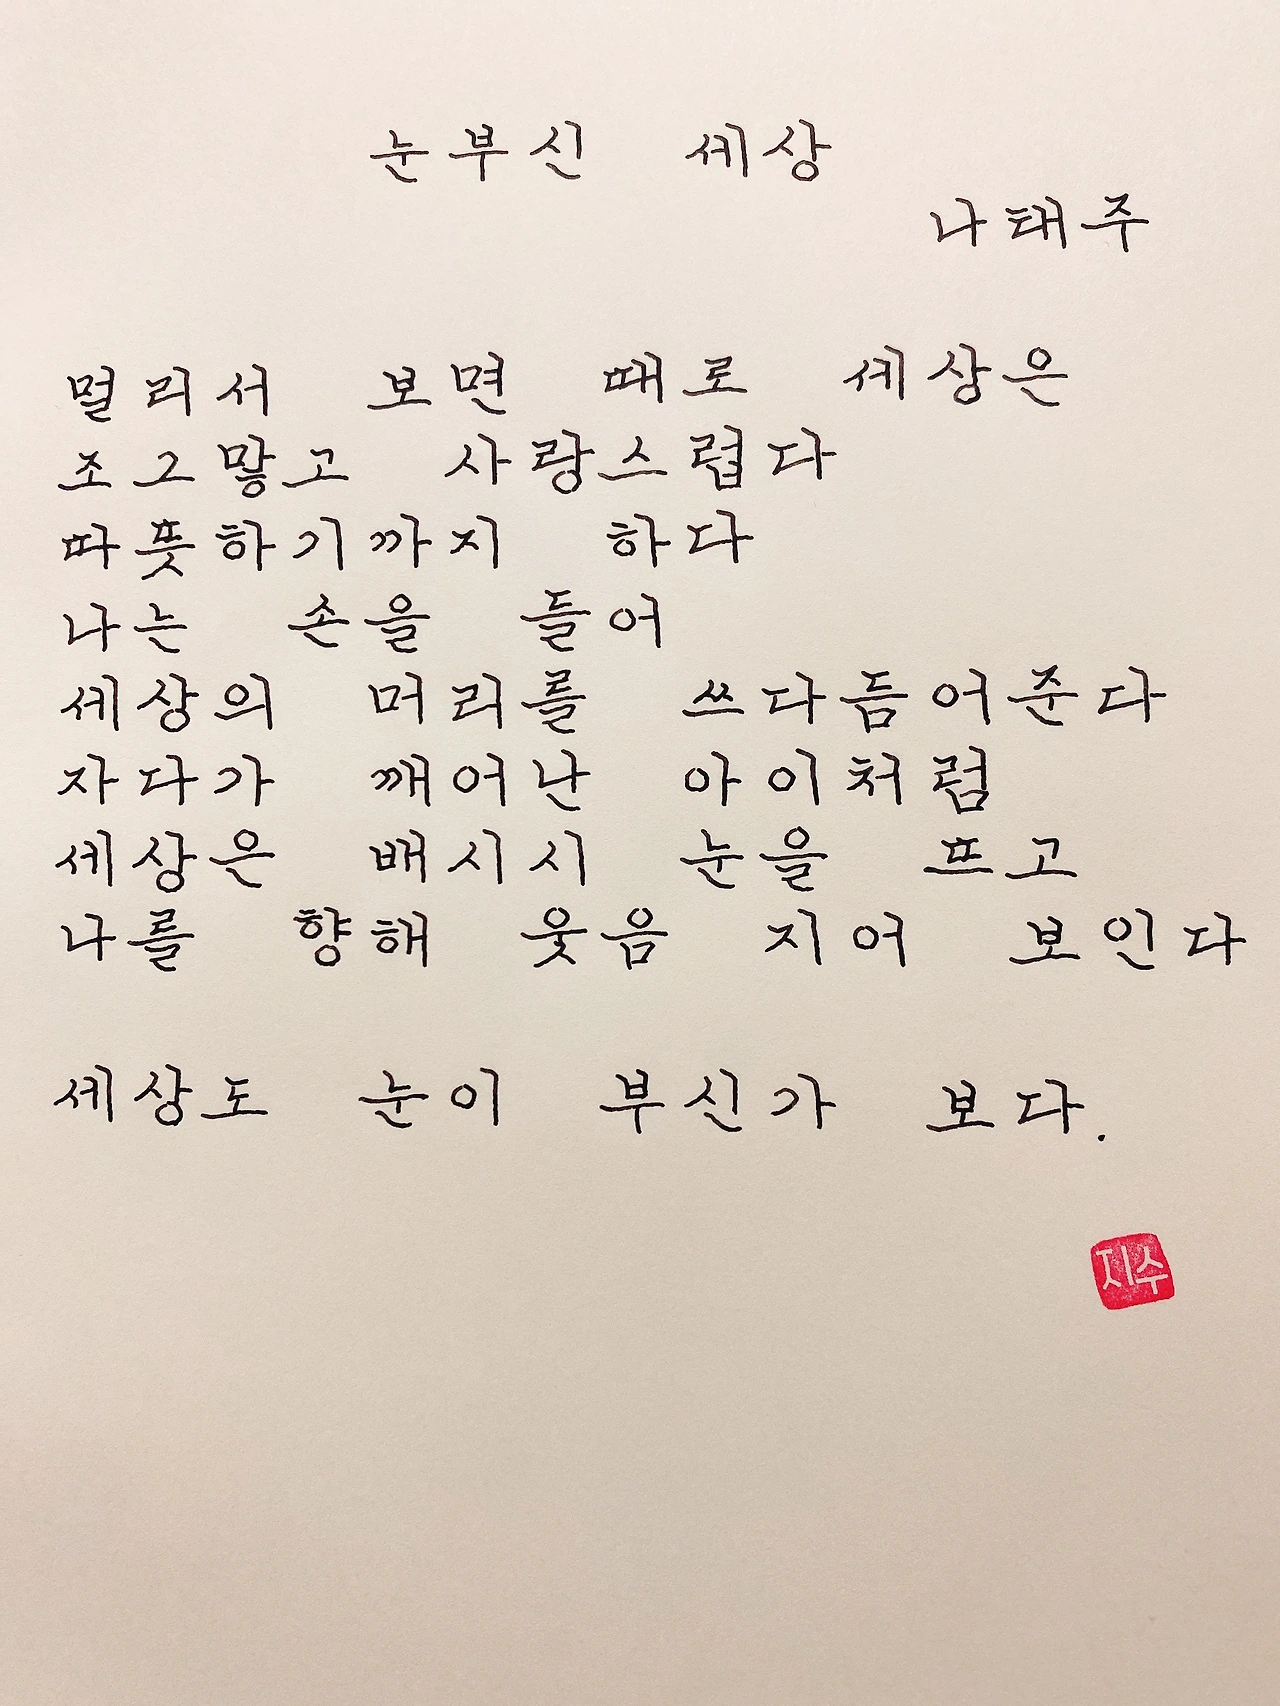 눈부신 세상
나태주
멀리서 보면 때로 세상은
조그맣고 사랑스럽다
따뜻하기까지 하다
나는 손을 들어
세상의 머리를 쓰다듬어준다
자다가 깨어난 아이처럼
세상은 배시시 눈을 뜨고
나를 향해 웃음 지어 보인다
세상도 눈이 부신가 보다.
지수